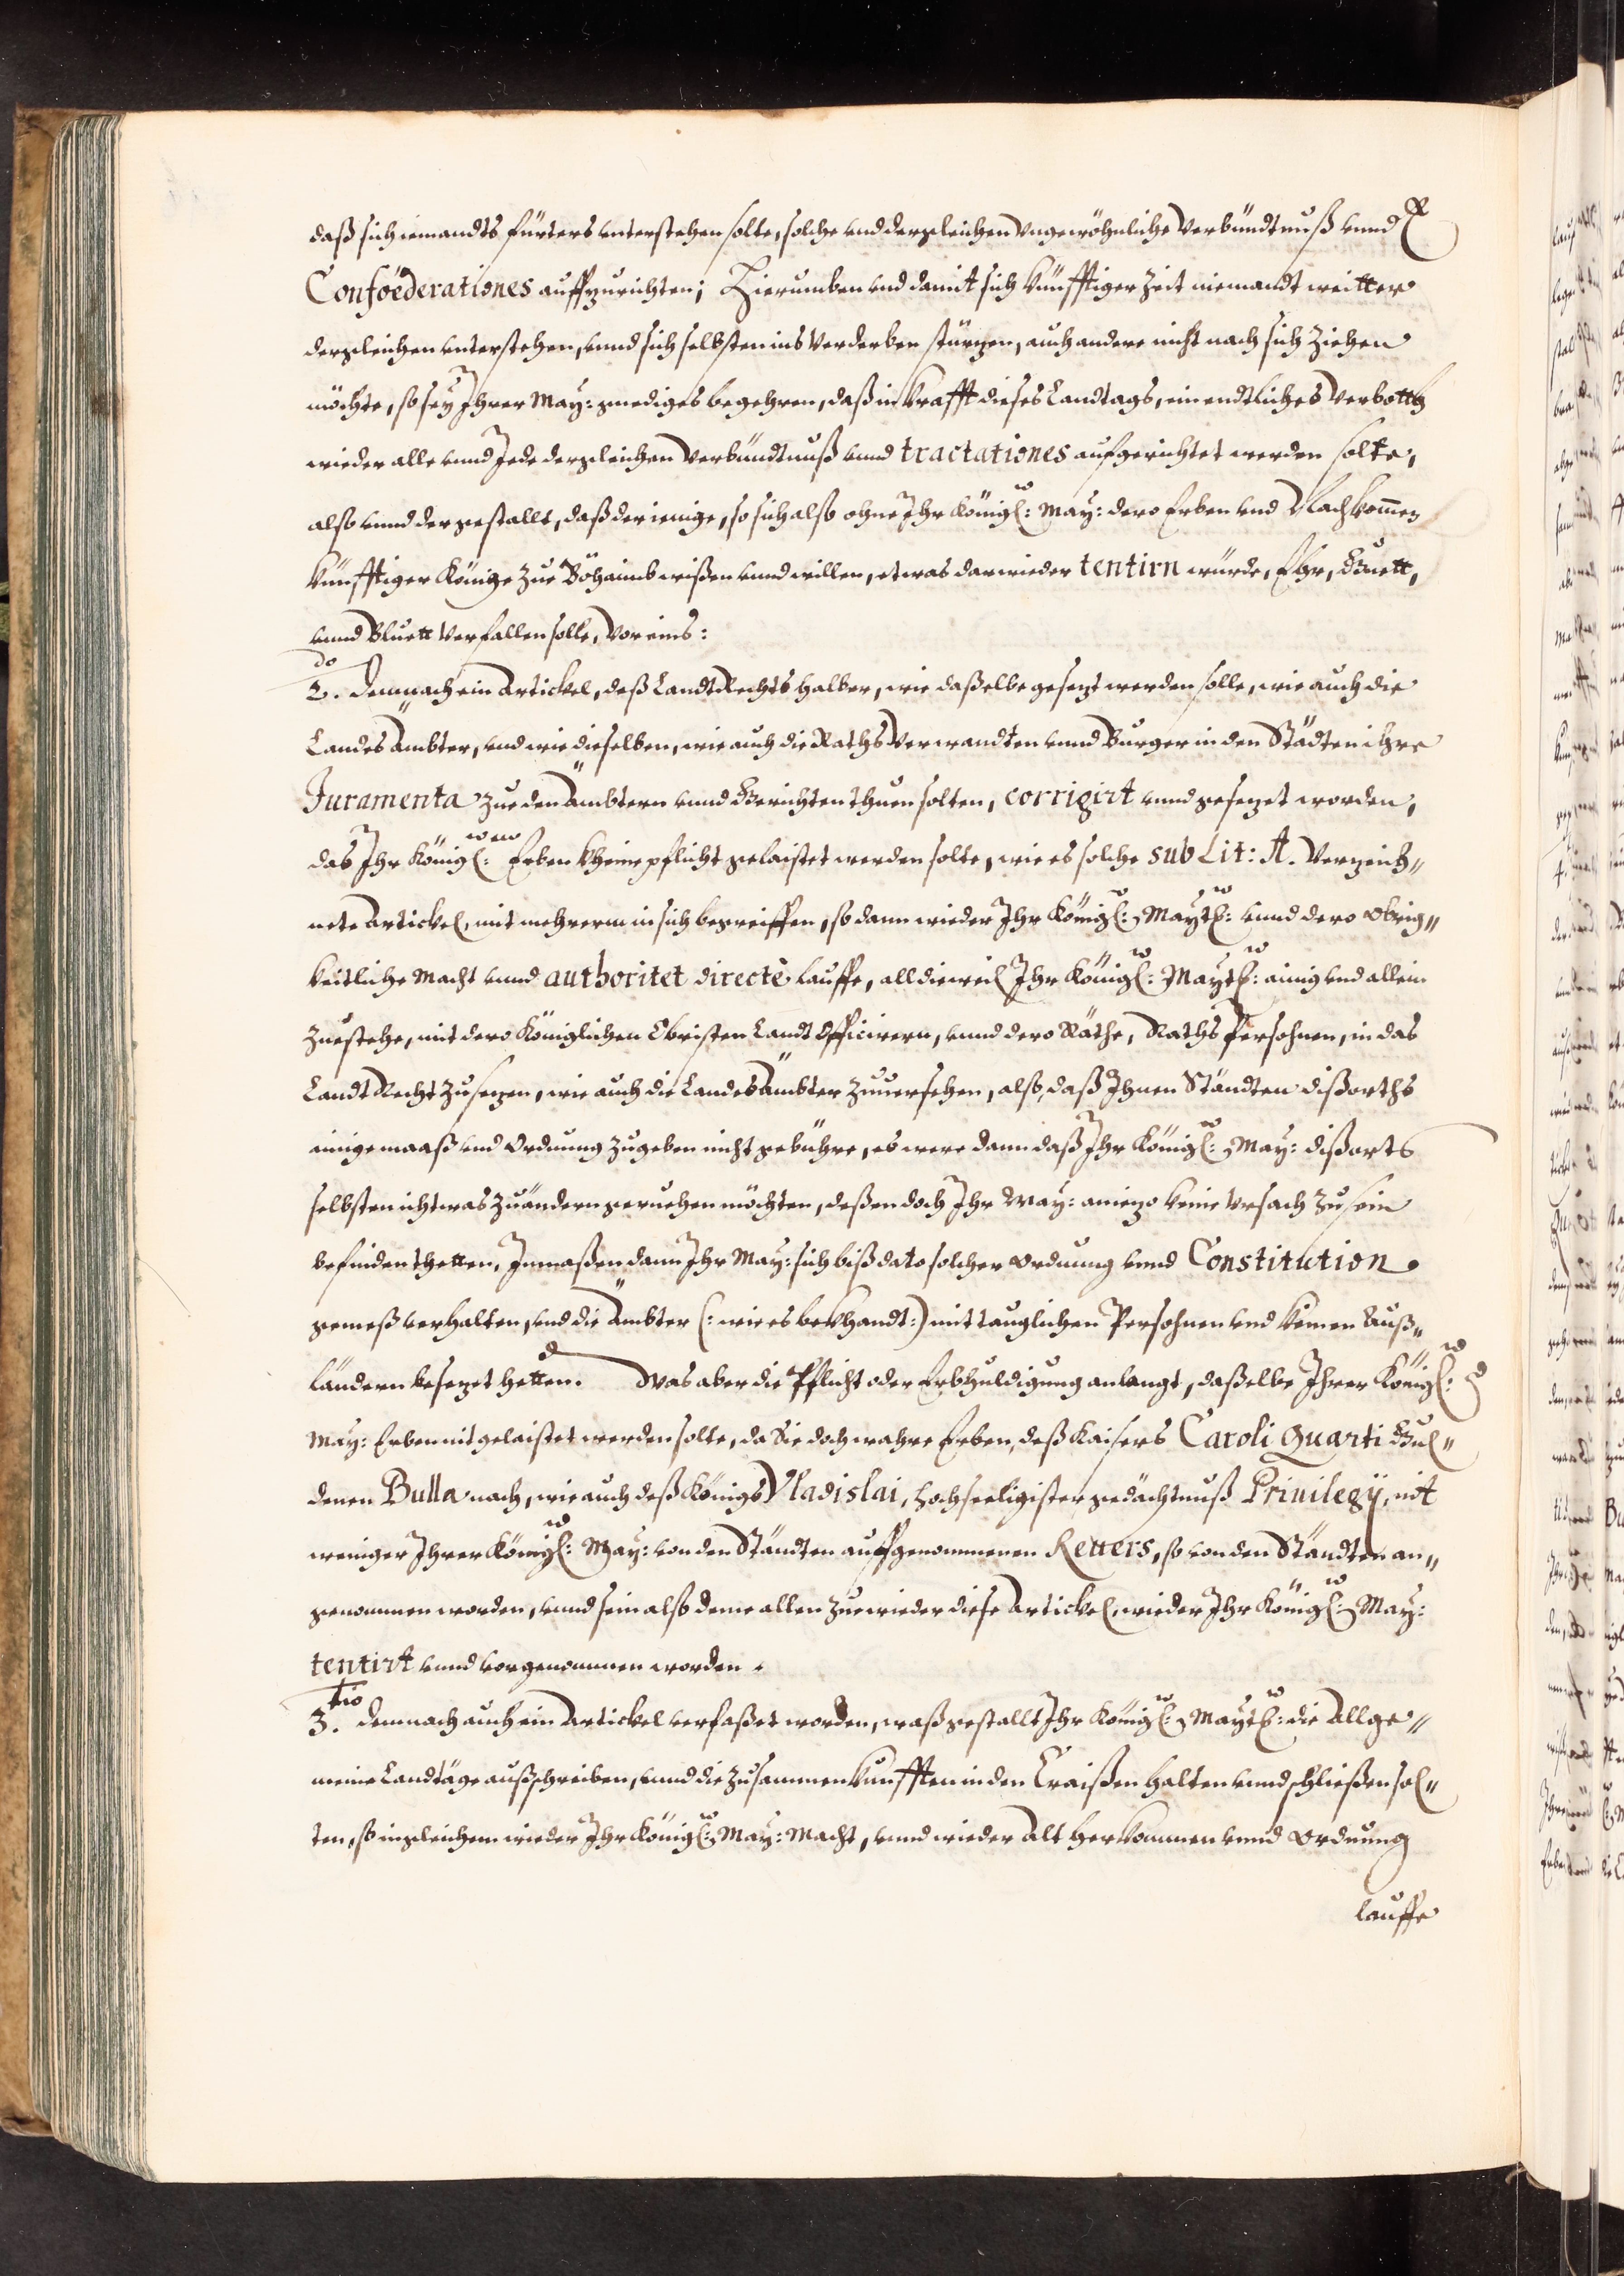 daß sich iemandts fürters unterstehen solte, solche und dergleichen ungewöhnliche Verbündtnuß unnd
Confoederationes auffzurichten; Hierumben und damit sich künfftiger Zeit niemandt weitter
dergleichen unterstehen, unnd sich selbsten ins Verderben stürzen, auch andere nicht nach sich Ziehen
möchte, so sey Ihrer May: gnediges begehren, daß in Krafft dieses Landtags, ein endtliches Verbotth
wieder alle unnd Jede dergleichen Verbündtnuß unnd tractationes aufgerichtet werden solte,
also unnd der gestallt, daß der ienige, so sich also ohne Ihr Königl: May: dero Erben und Nachkommen
künfftiger Könige zue Böhaimb wißen unnd willen, etwas darwieder tentirn würde, Ehr, Guett,
unnd Bluett Verfallen solle, Vor eins:
2.do Demnach ein Artickel, deß Landt Rechts halber, wie daßelbe gesezt werden solle, wie auch die
Landes Ämbter, und wie dieselben, wie auch die Raths Verwandten unnd Burger in den Städten ihre
Juramenta zue den Ämbtern unnd Gerichten thuen solten, corrigirt unnd gesezet worden,
das Ihr Königl: Erben kheine pflicht gelaistet werden solte, wie es solche sub Lit: A. Verzeich„
nete Artickel, mit mehrerm in sich begreiffen, so dann wieder Ihr Königl: Maytt: unnd dero Obrig„
keitliche Macht unnd authoritet directè lauffe, alldieweil Ihr Königl: Maytt: ainig und allein
Zuestehe, mit dero Königlichen Obristen Landt Officirern, unnd dero Räthe, Raths Persohnen, in das
Landt Recht Zusezen, wie auch die Landes Ämbter Zuuersehen, also, daß Ihnen Ständten dißorths
einige maaß und Ordnung Zugeben nicht gebühre, es were dann daß Ihr Königl: May: dißorts
selbsten ichtwas Zuändern geruehen möchten, deßen doch Ihr May: aniezo keine Ursach zu sein
befinden thetten, Inmaßen dann Ihr May: sich biß dato solcher Ordnung unnd Constitution
gemeß verhalten, und die Ämbter (: wie es bekhandt :) mit tauglichen Persohnen und keinen Auß„
ländern besezet hetten. Was aber die Pflicht oder Erbhuldigung anlangt, daßelbe Ihrer Königl:
May: Erben nit gelaistet werden solte, da Sie doch wahre Erben, deß Kaisers Caroli Quarti Gul„
denen Bulla nach, wie auch deß Königs Vladislai, hochseeligister gedächtnuß Priuilegÿ, nit
weniger Ihrer Königl: May: von den Ständten auffgenommenen Reuers, so von den Ständten an„
genommen worden, unnd sein also deme allen Zuewieder diese Artickel, wieder Ihr Königl: May:
tentirt unnd vorgenommen worden.
3.tio Demnach auch ein Artickel verfaßet worden, waß gestallt Ihr Königl: Maytt: die Allge„
meine Landtäge außschreiben, unnd die Zusammenkunfften in den Craißen halten unnd schließen sol„
ten, so ingleichem wieder Ihr Königl: May: Macht, unnd wieder Alt herkommen unnd Ordnung
lauffe